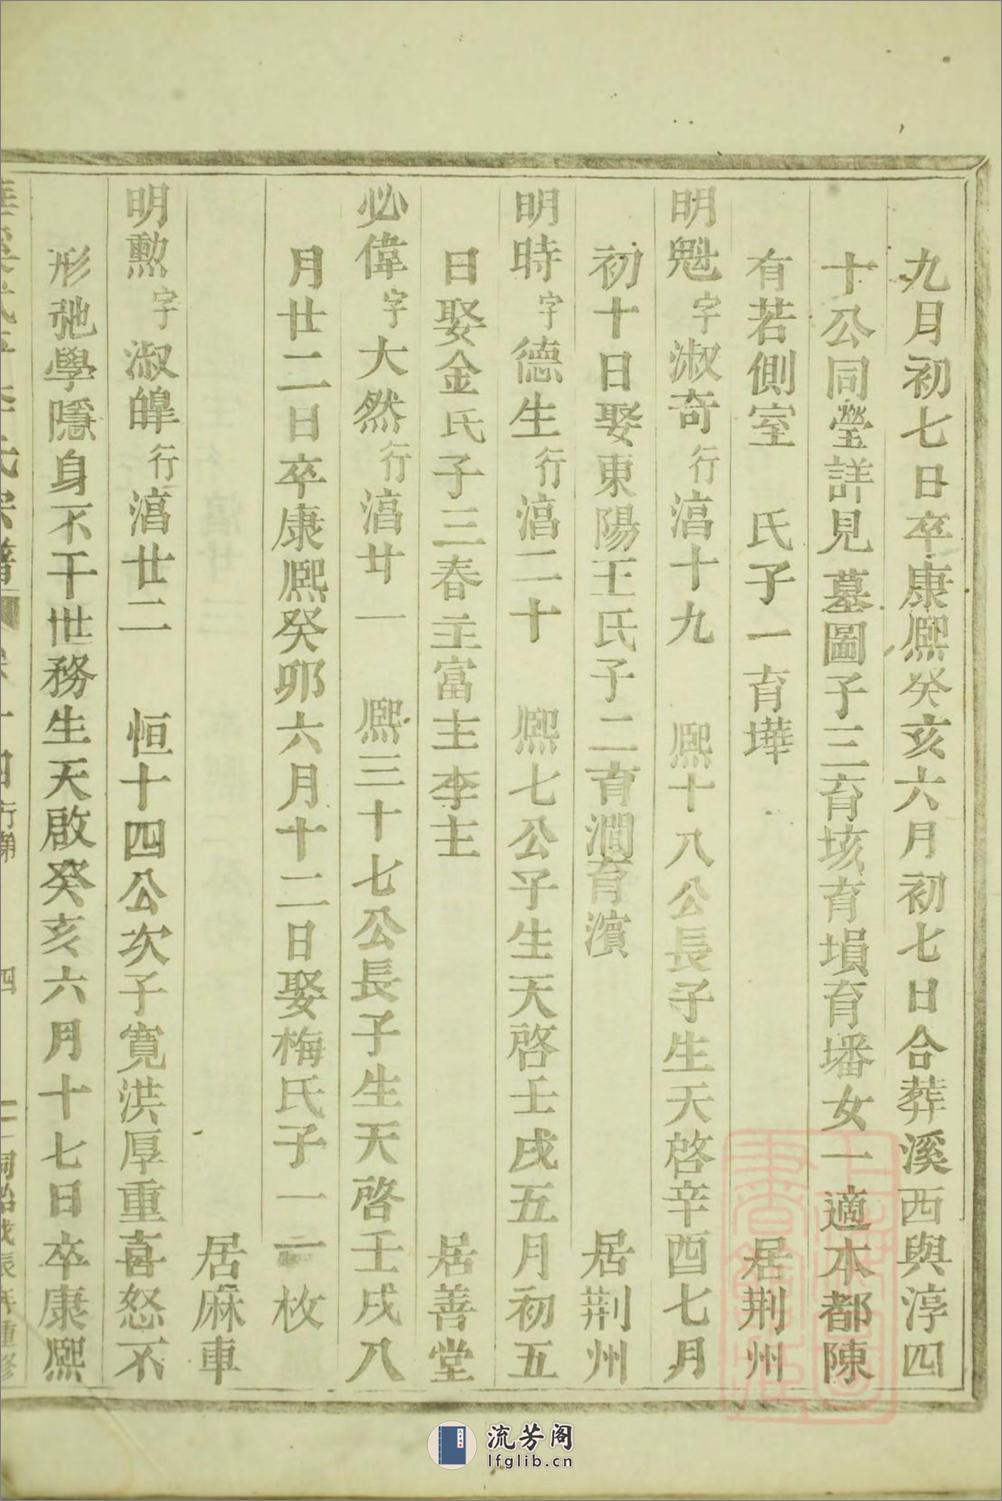 九月初七日卒康熙癸亥六月初七日合葬溪西與淳四
十公同瑩詳見墓圖子三育垓育塤育墦女一適本都陳
有若側室 氏子一育墷 居荆州
明魁字淑奇行濄十九 熙十八公長子生天啓辛酉七月
初十日娶東陽王氏子二育澗育濱 居荆州
明時字德生行濄二十 熙七公子生天啓壬戌五月初五
日娶金氏子三春主富主李主 居善堂
必偉字大然行濄廿一 熙三十七公長子生天啓壬戌八
月廿二日卒康熙癸卯六月十二日娶梅氏子一一枚
居麻車
明勲字淑皥行濄廿二 恒十四公次子寬洪厚重喜怒不
形弛學隱身不干世務生天啟癸亥六月十七日卒康熙
氏宗譜 十四行第 四 同治戊辰 重修
流芳阁
lfglib.cn